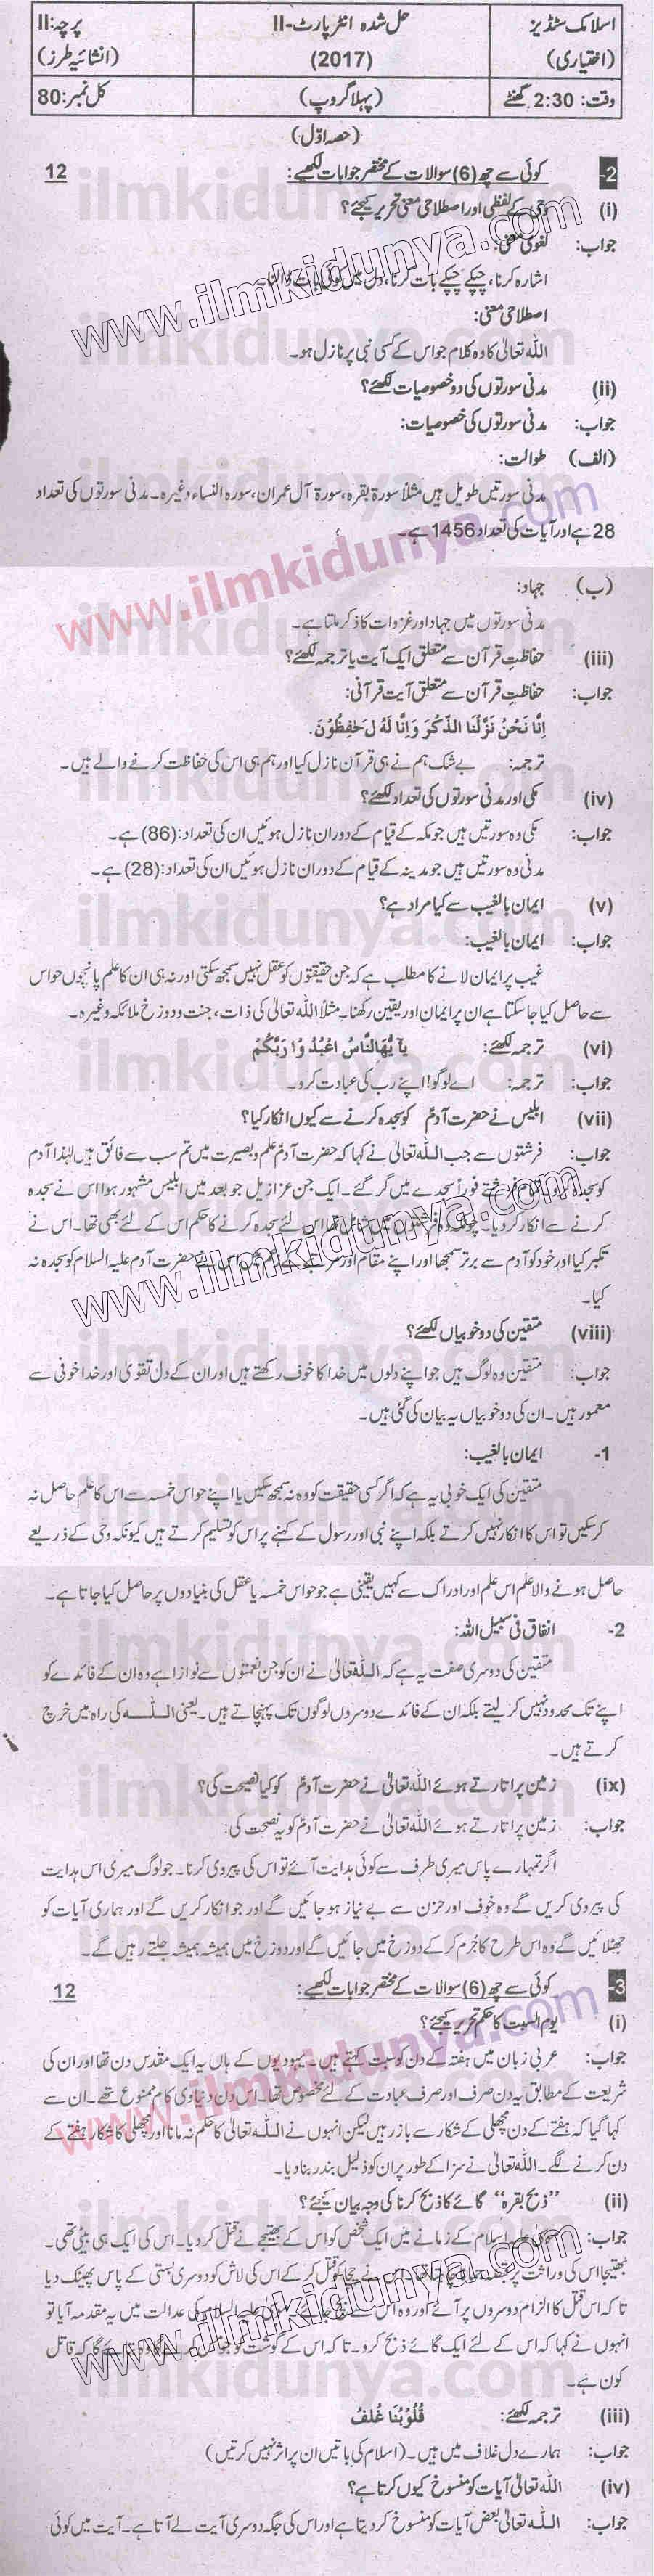 اسلامک سٹڈیز
(اختیاری)
وقت: 2:30 گھنٹے
حل شدہ انٹر پارٹ-II
(2017)
(پہلا گروپ)
پرچہ: II
(انشائیہ طرز)
کل نمبر: 80
(حصہ اوّل)
2- کوئی سے چھ (6) سوالات کے مختصر جوابات لکھیے: 12
(i) وحی کے لفظی اور اصطلاحی معنی تحریر کیجئے؟
جواب: لغوی معنی:
اشارہ کرنا، چپکے چپکے بات کرنا، دل میں کوئی بات ڈالنا۔
اصطلاحی معنی:
اللہ تعالیٰ کا وہ کلام جو اس کے کسی نبی پر نازل ہو۔
(ii) مدنی سورتوں کی دو خصوصیات لکھئے؟
جواب: مدنی سورتوں کی خصوصیات:
(الف) طوالت:
مدنی سورتیں طویل ہیں مثلاً سورۃ بقرہ، سورۃ آل عمران، سورہ النساء وغیرہ۔ مدنی سورتوں کی تعداد
28 ہے اور آیات کی تعداد 1456 ہے۔
(ب) جہاد:
مدنی سورتوں میں جہاد اور غزوات کا ذکر ملتا ہے۔
(iii) حفاظتِ قرآن سے متعلق ایک آیت یا ترجمہ لکھئے؟
جواب: حفاظتِ قرآن سے متعلق آیت قرآنی:
اِنَّا نَحْنُ نَزَّلْنَا الذِّكْرَ وَاِنَّا لَهُ لَ حٰفِظُوْنَ.
ترجمہ: بے شک ہم نے ہی قرآن نازل کیا اور ہم ہی اس کی حفاظت کرنے والے ہیں۔
(iv) مکی اور مدنی سورتوں کی تعداد لکھئے؟
جواب: مکی وہ سورتیں ہیں جو مکہ کے قیام کے دوران نازل ہوئیں ان کی تعداد: (86) ہے۔
مدنی وہ سورتیں ہیں جو مدینہ کے قیام کے دوران نازل ہوئیں ان کی تعداد: (28) ہے۔
(v) ایمان بالغیب سے کیا مراد ہے؟
جواب: ایمان بالغیب:
غیب پر ایمان لانے کا مطلب ہے کہ جن حقیقتوں کو عقل نہیں سمجھ سکتی اور نہ ہی ان کا علم پانچوں حواس
سے حاصل کیا جا سکتا ہے ان پر ایمان اور یقین رکھنا۔ مثلاً اللہ تعالیٰ کی ذات، جنت و دوزخ ملائکہ وغیرہ۔
(vi) ترجمہ لکھئے: يٰاَ يُّهَالنَّاسُ اعْبُدُ وْا رَبَّكُمْ
جواب: ترجمہ: اے لوگو! اپنے رب کی عبادت کرو۔
(vii) ابلیس نے حضرت آدمؑ کو سجدہ کرنے سے کیوں انکار کیا؟
جواب: فرشتوں سے جب اللہ تعالیٰ نے کہا کہ حضرت آدمؑ علم و بصیرت میں تم سب سے فائق ہیں لہٰذا آدم
کو سجدہ کرو تو فرشتے فوراً سجدے میں گر گئے۔ ایک جن عزازیل جو بعد میں ابلیس مشہور ہوا اس نے سجدہ
کرنے سے انکار کر دیا۔ چونکہ وہ فرشتوں میں شامل تھا اس لئے سجدہ کرنے کا حکم اس کے لئے بھی تھا۔ اس نے
تکبر کیا اور خود کو آدم سے برتر سمجھا اور اپنے مقام اور حضرت آدم علیہ السلام کو سجدہ نہ
کیا۔
(viii) متقین کی دو خوبیاں لکھئے؟
جواب: متقین وہ لوگ ہیں جو اپنے دلوں میں خدا کا خوف رکھتے ہیں اور ان کے دل تقویٰ اور خدا خوفی سے
معمور ہیں۔ ان کی دو خوبیاں یہ بیان کی گئی ہیں۔
1- ایمان بالغیب:
متقین کی ایک خوبی یہ ہے کہ اگر کسی حقیقت کو وہ نہ سمجھ سکیں یا اپنے حواس خمسہ سے اس کا علم حاصل نہ
کر سکیں تو اس کا انکار نہیں کرتے بلکہ اپنے نبی اور رسول کے کہنے پر اس کو تسلیم کرتے ہیں کیونکہ وحی کے ذریعے
حاصل ہونے والا علم اس علم اور ادراک سے کہیں یقینی ہے جو حواس خمسہ یا عقل کی بنیادوں پر حاصل کیا جاتا ہے۔
2- انفاق فی سبیل اللہ:
متقین کی دوسری صفت یہ ہے کہ اللہ تعالیٰ نے ان کو جن نعمتوں سے نوازا ہے وہ ان کے فائدے کو
اپنے تک محدود نہیں کر لیتے بلکہ ان کے فائدے دوسروں لوگوں تک پہنچاتے ہیں۔ یعنی اللہ کی راہ میں خرچ
کرتے ہیں۔
(ix) زمین پر اتارتے ہوئے اللہ تعالیٰ نے حضرت آدمؑ کو کیا نصیحت کی؟
جواب: زمین پر اتارتے ہوئے اللہ تعالیٰ نے حضرت آدمؑ کو یہ نصحت کی:
اگر تمہارے پاس میری طرف سے کوئی ہدایت آئے تو اس کی پیروی کرنا۔ جو لوگ میری اس ہدایت
کی پیروی کریں گے وہ خوف اور حزن سے بے نیاز ہو جائیں گے اور جو انکار کریں گے اور ہماری آیات کو
جھٹلائیں گے وہ اس طرح کا جُرم کر کے دوزخ میں جائیں گے اور دوزخ میں ہمیشہ ہمیشہ جلتے رہیں گے۔
3- کوئی سے چھ (6) سوالات کے مختصر جوابات لکھیے: 12
(i) یوم السبت کا حکم تحریر کیجئے؟
جواب: عربی زبان میں ہفتہ کے دن کو سبت کہتے ہیں۔ یہودیوں کے ہاں یہ ایک مقدس دن تھا اور ان کی
شریعت کے مطابق یہ دن صرف اور صرف عبادت کے لئے مخصوص تھا۔ اس دن دنیاوی کام ممنوع تھے۔ ان سے
کہا گیا کہ ہفتے کے دن مچھلی کے شکار سے باز رہیں لیکن انہوں نے اللہ تعالیٰ کا حکم نہ مانا اور مچھلی کا شکار ہفتے کے
دن کرنے لگے۔ اللہ تعالیٰ نے سزا کے طور پر ان کو ذلیل بندر بنا دیا۔
(ii) "ذبح بقرہ" گائے کا ذبح کرنا کی وجہ بیان کیجئے؟
جواب: موسیٰ علیہ اسلام کے زمانے میں ایک شخص کو اس کے بھتیجے نے قتل کر دیا۔ اس کی ایک ہی بیٹی تھی۔
بھتیجا اس کی وراثت پر نے چچا کو قتل کر کے اس کی لاش کو دوسری بستی کے پاس پھینک دیا
تا کہ اس قتل کا الزام دوسروں پر آئے اور وہ اس سے کی عدالت میں یہ مقدمہ آیا تو
انہوں نے کہا کہ اس کے لئے ایک گائے ذبح کرو۔ تا کہ اس کے گوشت کو گا کہ قاتل
کون ہے۔
(iii) ترجمہ لکھئے: قُلُوْبُنَا غُلْفُ
جواب: ہمارے دل غلاف میں ہیں۔ (اسلام کی باتیں ان پر اثر نہیں کرتیں)
(iv) اللہ تعالیٰ آیات کو منسوخ کیوں کرتا ہے؟
جواب: اللہ تعالیٰ بعض آیات کو منسوخ کر دیتا ہے اور اس کی جگہ دوسری آیت لے آتا ہے۔ آیت میں کوئی